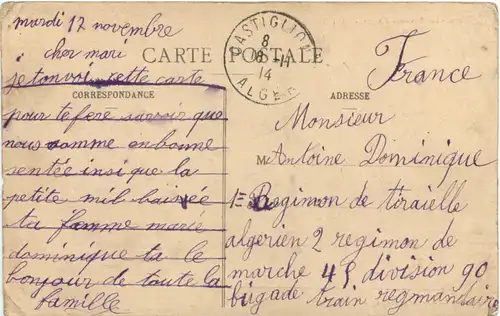 mardi 17 novembre
cher mari
CARTE POSTALE
je tonvoi cette carte
CORRESPONDANCE
pour te fere savoir que
nous somme en bonne
sentée insi que la
petite mil baisée
ta famme marie
dominique ta le
bonjour de toute la
famille
CASTIGLIONE
8
11
14
ALGER
France
ADRESSE
Monsieur
M
Antoine Dominique
Regimon de tiraielle
algerien 2 regimon de
marche 45 division 90
bigade train regmandaire